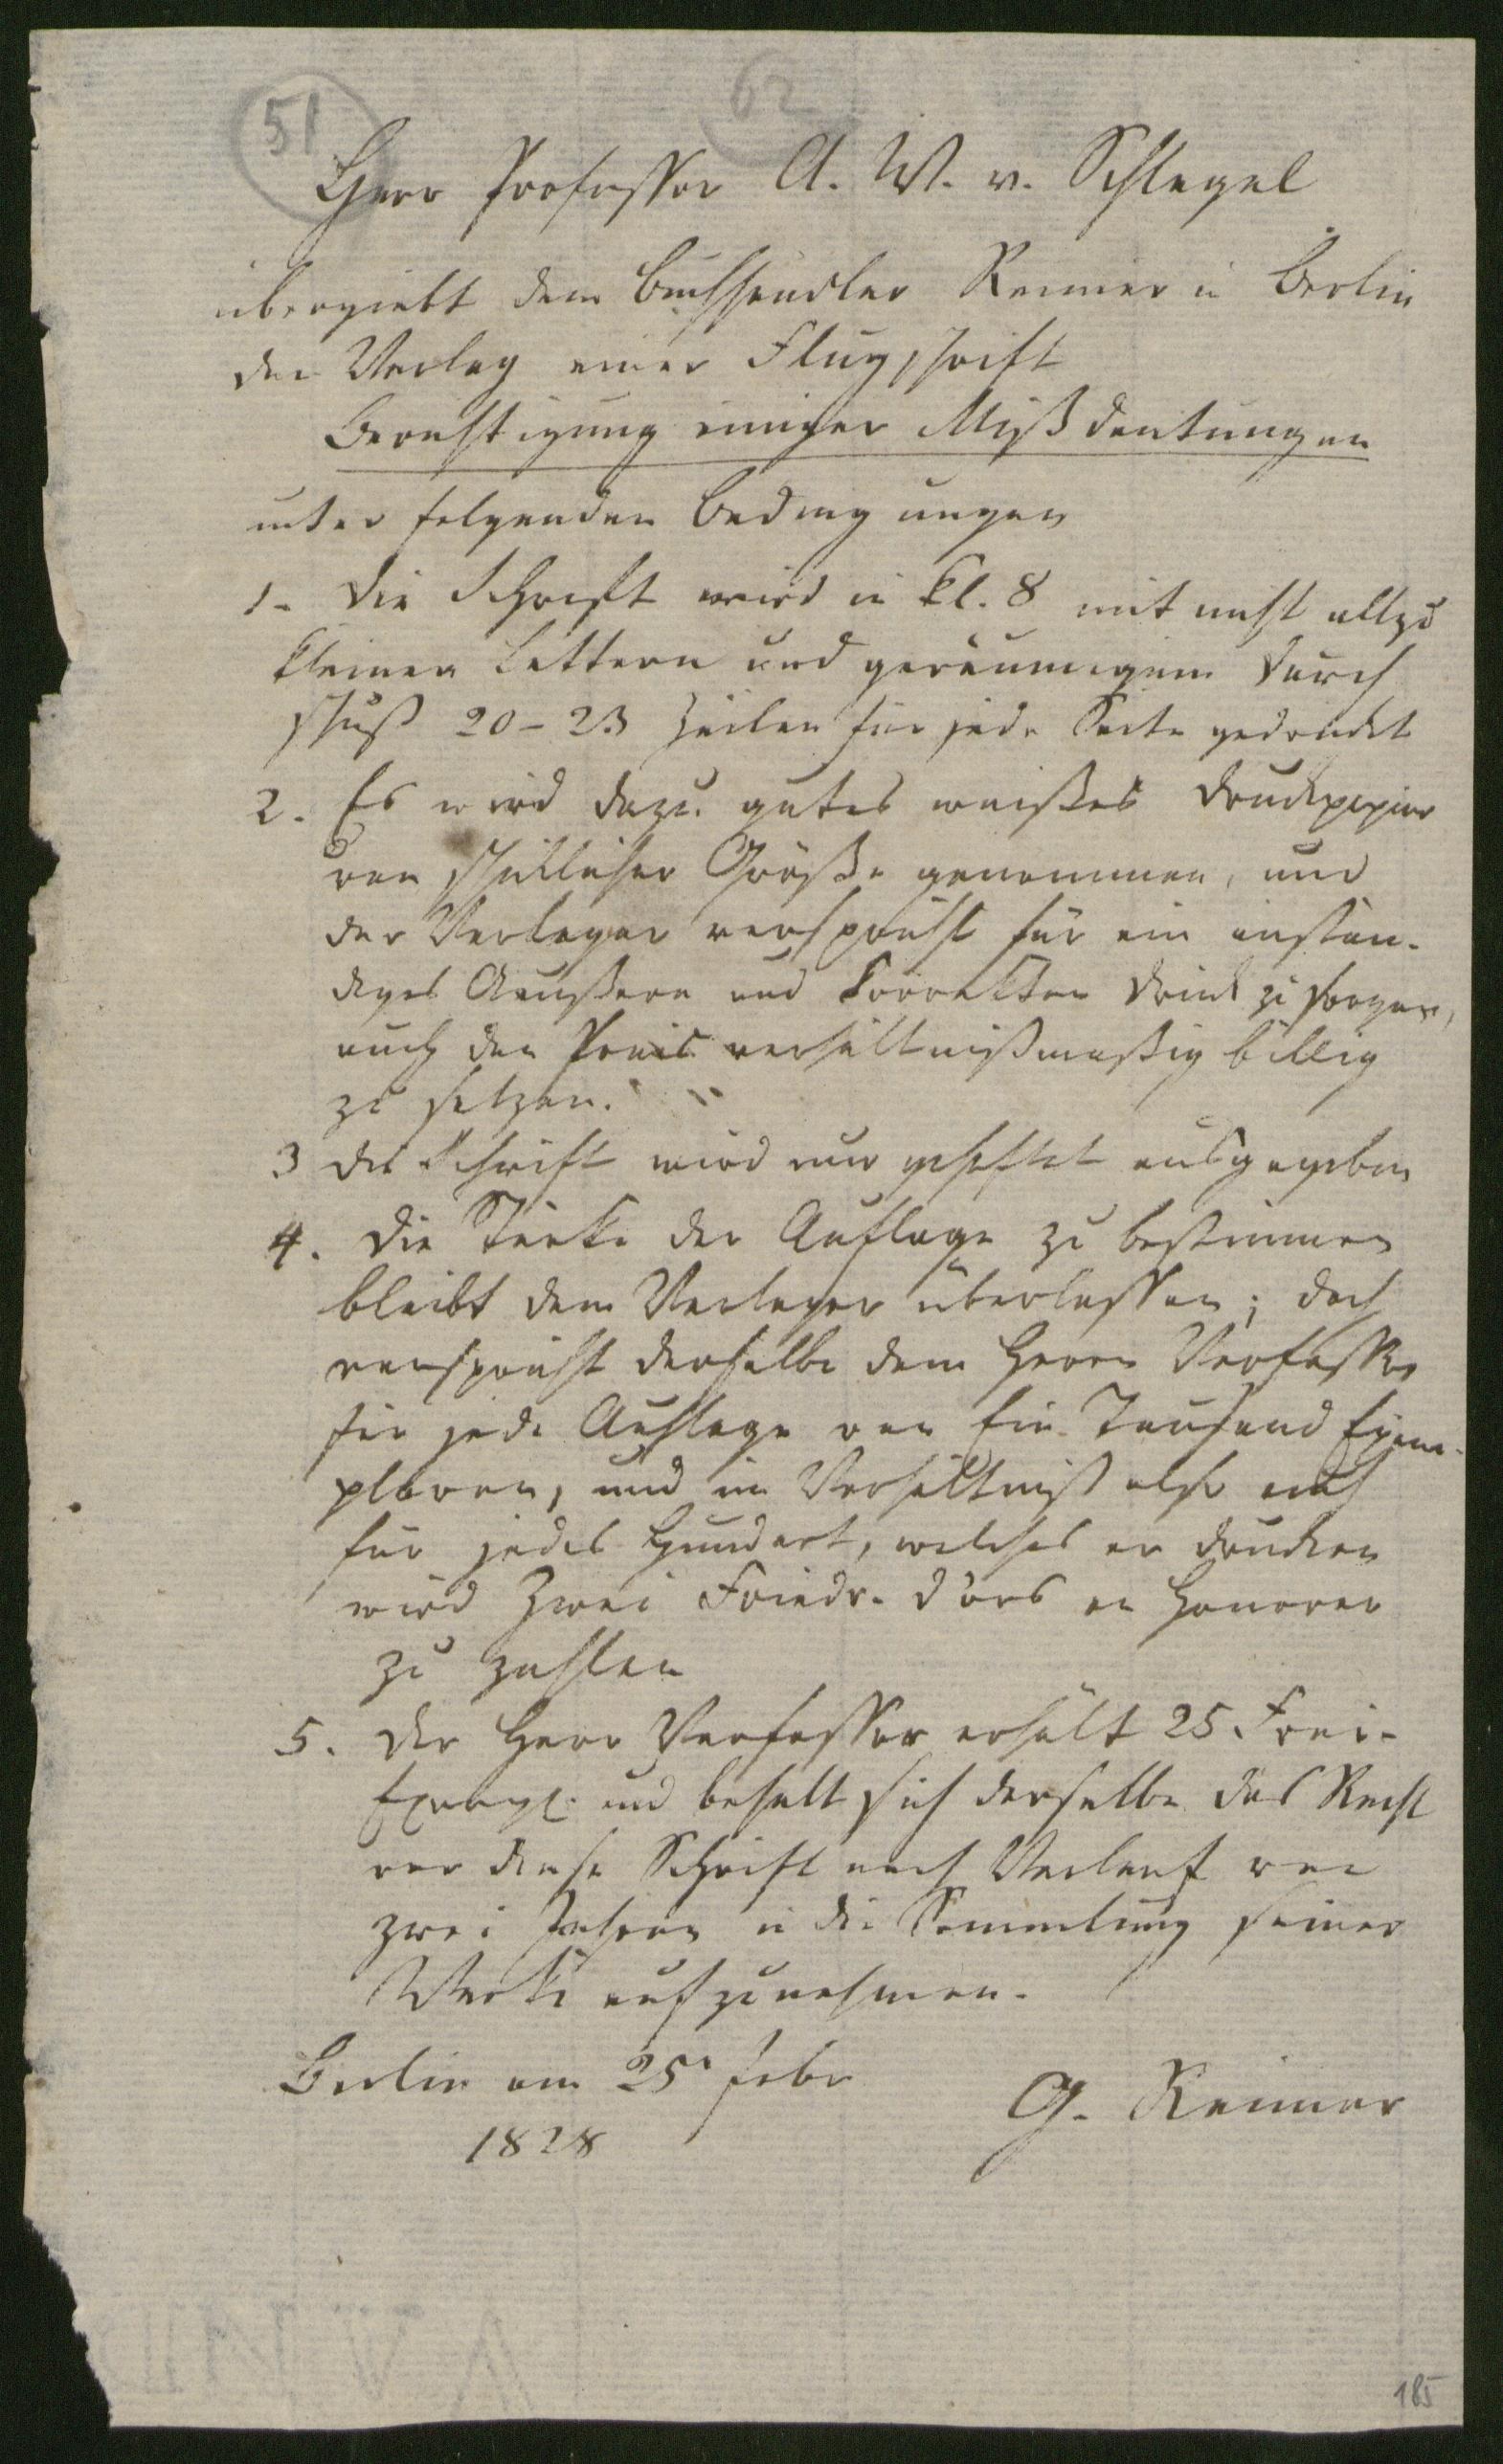 51
62
Herr Professor A. W. v. Schlegel
übergiebt dem Buchhändler Reimer in Berlin
den Verlag einer Flugschrift
Berichtigung einiger Mißdeutungen
unter folgenden Bedingungen
1. Die Schrift wird in kl. 8 mit nicht allzu
kleinen Lettern und geräumigem Durch
schuß 20-23 Zeilen für jede Seite gedruckt
2. Es wird dazu gutes weißes Druckpapier
von schicklicher Größe genommen, und
der Verleger verspricht für ein anstän-
diges Aeußere und korrekten Druck zu sorgen,
auch den Preis verhältnißmäßig billig
zu setzen.
3 die Schrift wird nur geheftet ausgegeben
4. Die Stärke der Auflage zu bestimmen
bleibt dem Verleger überlassen; doch
verspricht derselbe dem Herrn Verfasser
für jede Auflage von Ein Tausend Exem-
plaren, und im Verhältniß also auch
für jedes Hundert, welches er drucken
wird Zwei Friedr. d'ors an Honorar
zu zahlen
5. Der Herr Verfasser erhält 25 Frei-
Exempl. und behält sich derselbe das Recht
vor diese Schrift nach Verlauf von
zwei Jahren in die Sammlung seiner
Werke aufzunehmen.
Berlin am 25 Febr
1828
G. Reimer
185